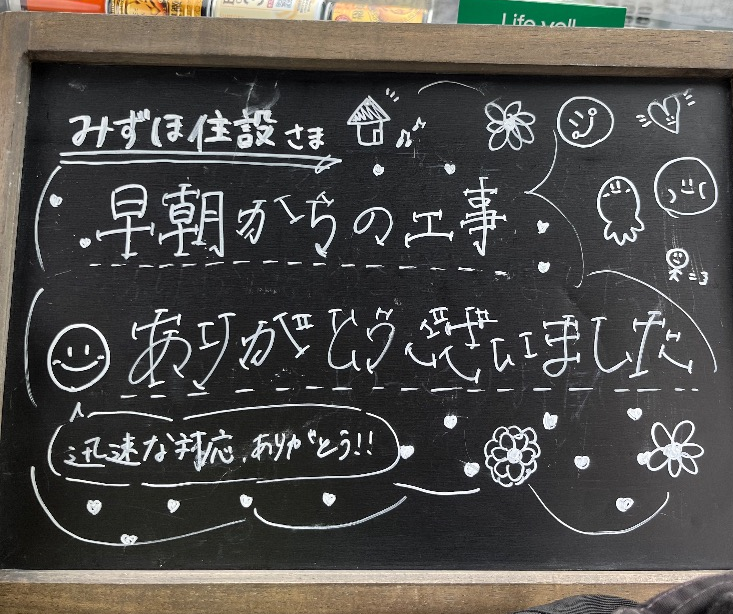 Life-yell
みずほ住設さま
早朝からの工事
ありがとうございました
迅速な対応、ありがとう!!